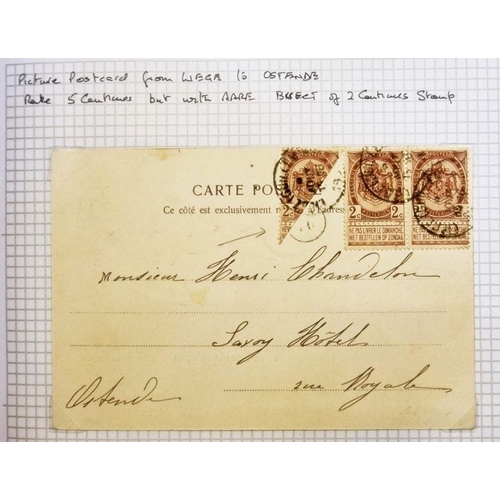 Picture Postcard from LIEGE to OSTENDE
Rate 5 Centimes but with RARE BISECT of 2 Centimes Stamp
CARTE POS
Ce côté est exclusivement r à l'adresse
2
2c 2c 2c
NE PAS LIVRER LE DIMANCHE NE PAS LIVRER LE DIMANCHE
NIET BESTELLEN OP ZONDAG NIET BESTELLEN OP ZONDAG
Monsieur Henri Chandelon
Savoy Hôtel
rue Royale
Ostende